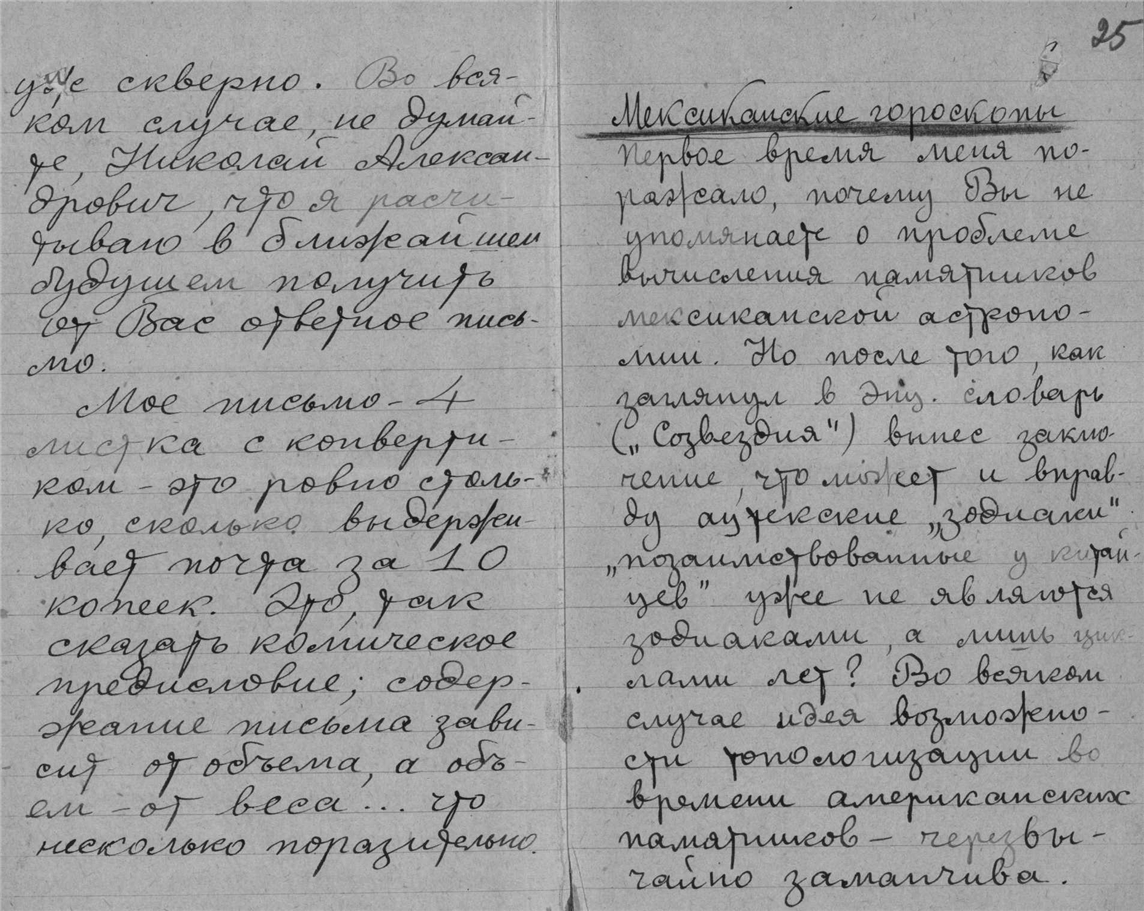 уже скверно. Во вся-
ком случае, не думай-
те, Николай Алексан-
дрович, что я расчи-
тываю в ближайшем
будущем получить
от Вас ответное пись-
мо.
Мое письмо - 4
листка с конверти-
ком - это ровно столь-
ко, сколько выдержи-
вает почта за 10
копеек. Это, так
сказать комическое
предисловие; содер-
жание письма зави-
сит от объема, а объ-
ем - от веса... что
несколько поразительно.
25
Мексиканские гороскопы
Первое время меня по-
ражало, почему Вы не
упомянаете о проблеме
вычисления памятников
мексиканской астроно-
мии. Но после того, как
заглянул в Энц. словарь
(„Созвездия") вынес заклю-
чение, что может и вправ-
ду ацтекские „зодиаки"
„позаимствованные у китай-
цев" уже не являются
зодиаками, а лишь цик-
лами лет? Во всяком
случае идея возможно-
сти топологизации во
времени американских
памятников - черезвы-
чайно заманчива.